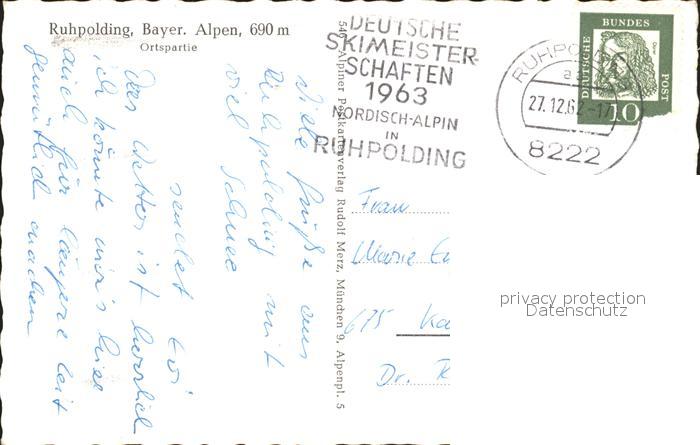 Ruhpolding, Bayer. Alpen, 690 m
Ortspartie
Viele Grüße aus
Ruhpolding mit
viel Schnee
sendet Evi
Das Wetter ist herrlich
ich könnte mir's hier
auch für längere Zeit
gemütlich machen
546 Alpiner Postkartenverlag Rudolf Merz, München 9, Alpenpl. 5
DEUTSCHE
SKIMEISTER-
SCHAFTEN
1963
NORDISCH-ALPIN
IN
RUHPOLDING
RUHPOLDING
a
27.12.62-17
8222
DEUTSCHE
BUNDES
POST
Dürer
10
Frau
Marie
675 Ka
Dr. R
privacy protection
Datenschutz